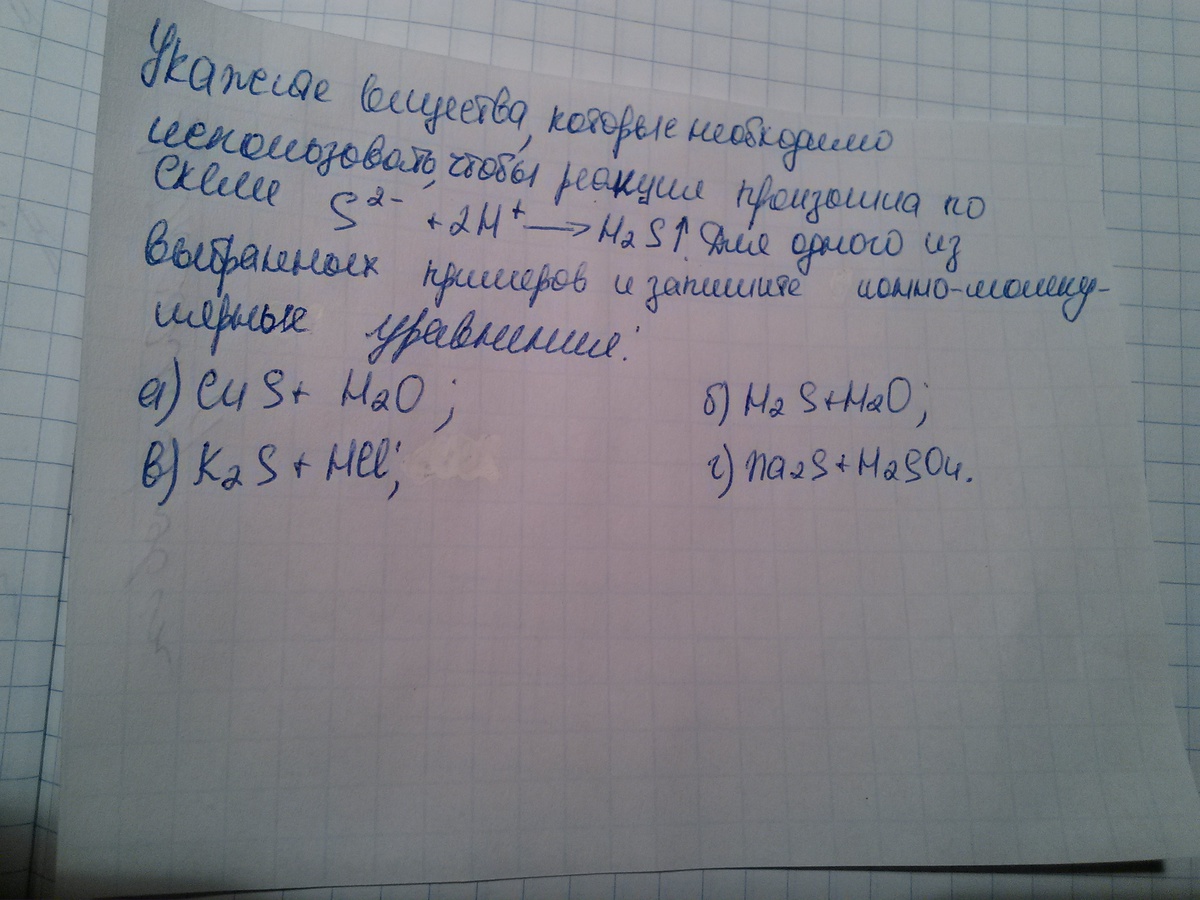 Укажите вещества, которые необходимо
использовать, чтобы реакция произошла по
схеме S²⁻ + 2H⁺ → H₂S↑ Для одного из
выбранных примеров и запишите ионно-молеку-
лярные уравнения:
а) CuS + H₂O; б) H₂S + H₂O;
в) K₂S + HCl; г) Na₂S + H₂SO₄.